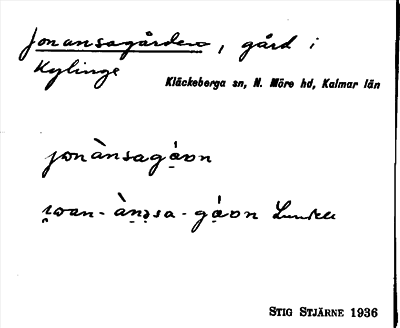 Jonansagården, gård i
Kylinge
Kläckeberga sn, N. Möre hd, Kalmar län
jonànsagán
Lundell
STIG STJÄRNE 1936